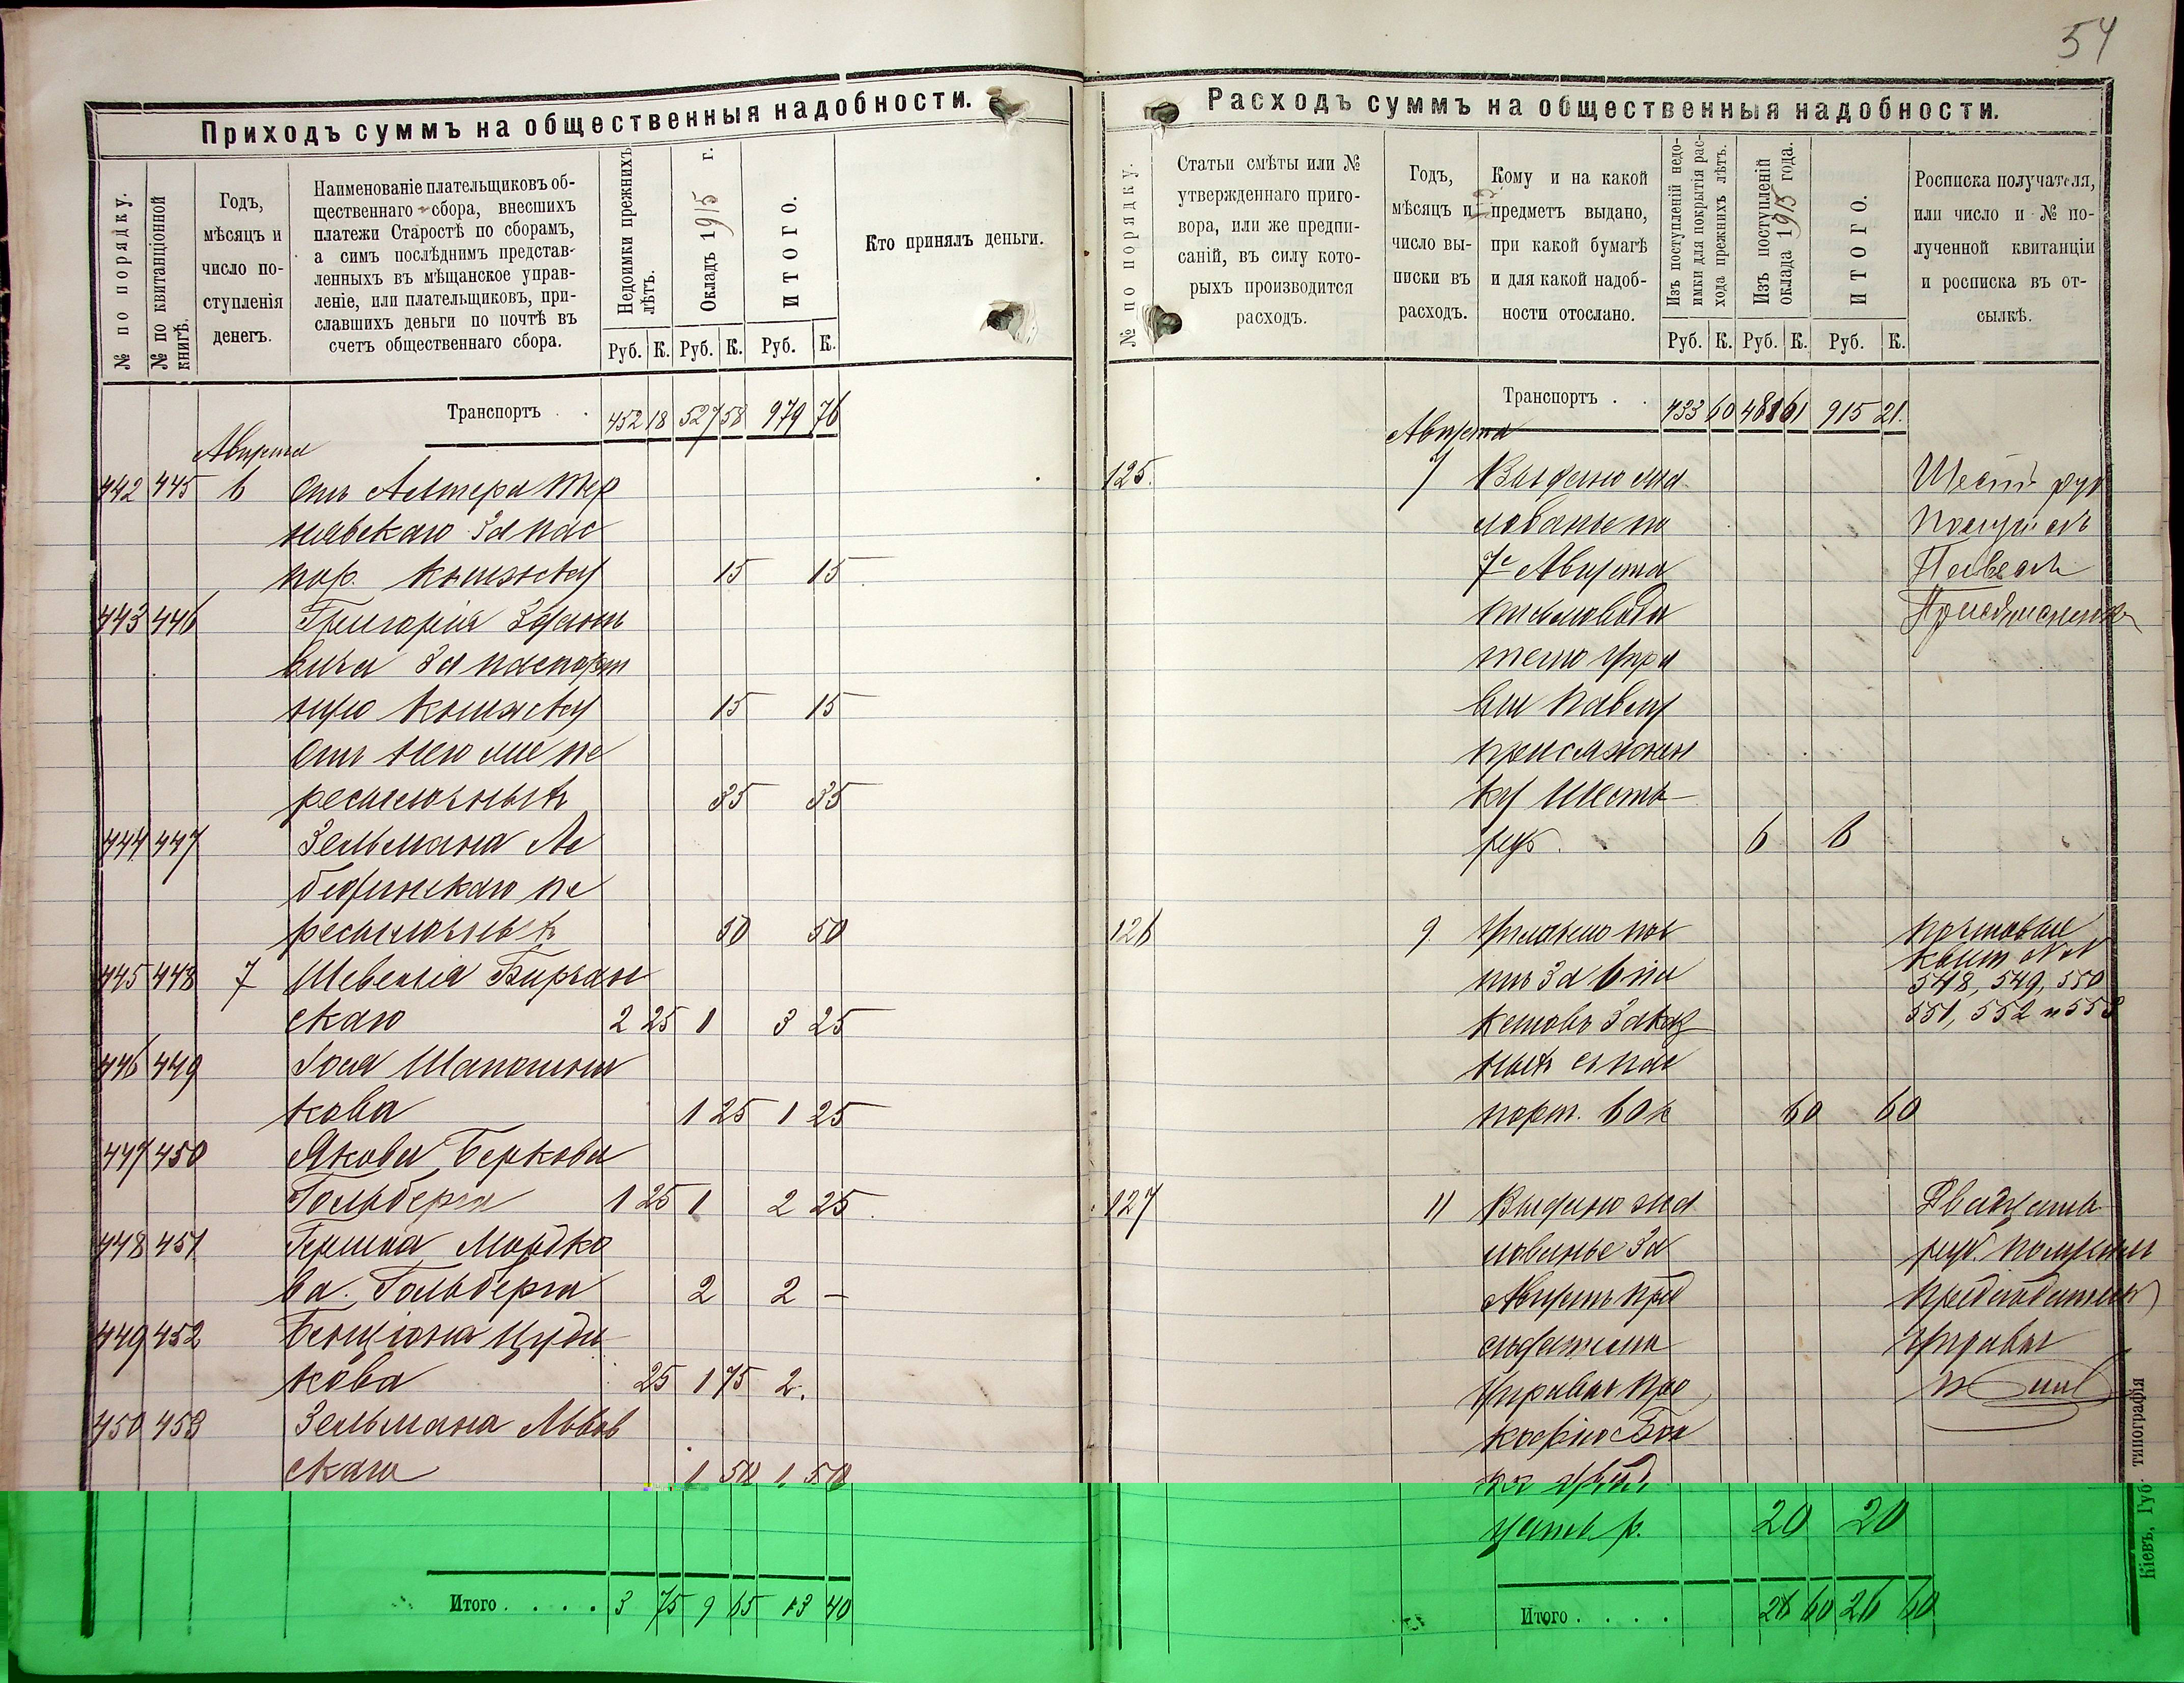 54
Приходъ суммъ на общественныя надобности.
№ по порядку.
№ по квитанціонной книгѣ.
Годъ,
мѣсяцъ и
число по-
ступленія
денегъ.
Наименованіе плательщиковъ об-
щественнаго сбора, внесшихъ
платежи Старостѣ по сборамъ,
а симъ послѣднимъ представ-
ленныхъ въ мѣщанское управ-
леніе, или плательщиковъ, при-
славшихъ деньги по почтѣ въ
счетъ общественнаго сбора.
Недоимки прежнихъ
лѣтъ.
Окладъ 1915 г.
ИТОГО.
Кто принялъ деньги.
Руб. К. Руб. К. Руб. К.
Транспортъ . . 452 18 527 58 979 76
Августа
442 445 6 Отъ Алтера Тер
нявскаго За пас
пор. книжку 15 15
443 446 Григорія
вича За паспорт
ную книжку 15 15
Отъ него же пе
ресылочныхъ 35 35
444 447 Зельмана Ле
бединскаго пе
ресылочныхъ 50 50
445 448 7 Шевеля
скаго 2 25 1 3 25
446 449 Іося Шапошни
кова 1 25 1 25
447 450 Якова Беркова
Гольдберга 1 25 1 2 25
448 451 Гершка Мордко
ва Гольдберга 2 2 —
449 452 Бенціона Цуди
кова 25 1 75 2.
450 453 Зельмана Львов
скаго 1 50 1 50
Итого . . . . 3 75 9 65 13 40
Расходъ суммъ на общественныя надобности.
№ по порядку.
Статьи смѣты или №
утвержденнаго приго-
вора, или же предпи-
саній, въ силу кото-
рыхъ производится
расходъ.
Годъ,
мѣсяцъ и
число вы-
писки въ
расходъ.
Кому и на какой
предметъ выдано,
при какой бумагѣ
и для какой надоб-
ности отослано.
Изъ поступленій недо-
имки для покрытія рас-
хода прежнихъ лѣтъ.
Изъ поступленій
оклада 1915 года.
ИТОГО.
Росписка получателя,
или число и № по-
лученной квитанціи
и росписка въ от-
сылкѣ.
Руб. К. Руб. К. Руб. К.
Транспортъ . . 433 60 481 61 915 21.
Августа
125. 7 Выдано жа Шесть руб
лованье по получилъ
7е Августа Павелъ
письмоводи
телю Упра
вы Павлу
присяжни
ку Шесть
руб. 6 6
126 9. Уплачено поч почтовыя
квит №№
тѣ За 6 па 548, 549, 550
кетовъ Заказ 551, 552 и 553
ныхъ съ пас
порт. 60 к 60 60
127 11 Выдано жа Двадцать
лованье За руб. получилъ
Августъ пред Предсѣдатель
сѣдателю Управы
Управы Про
кофію
ко двад
цать р. 20 20
Итого . . . . 26 60 26 60
Кіевъ, Губ. типографія